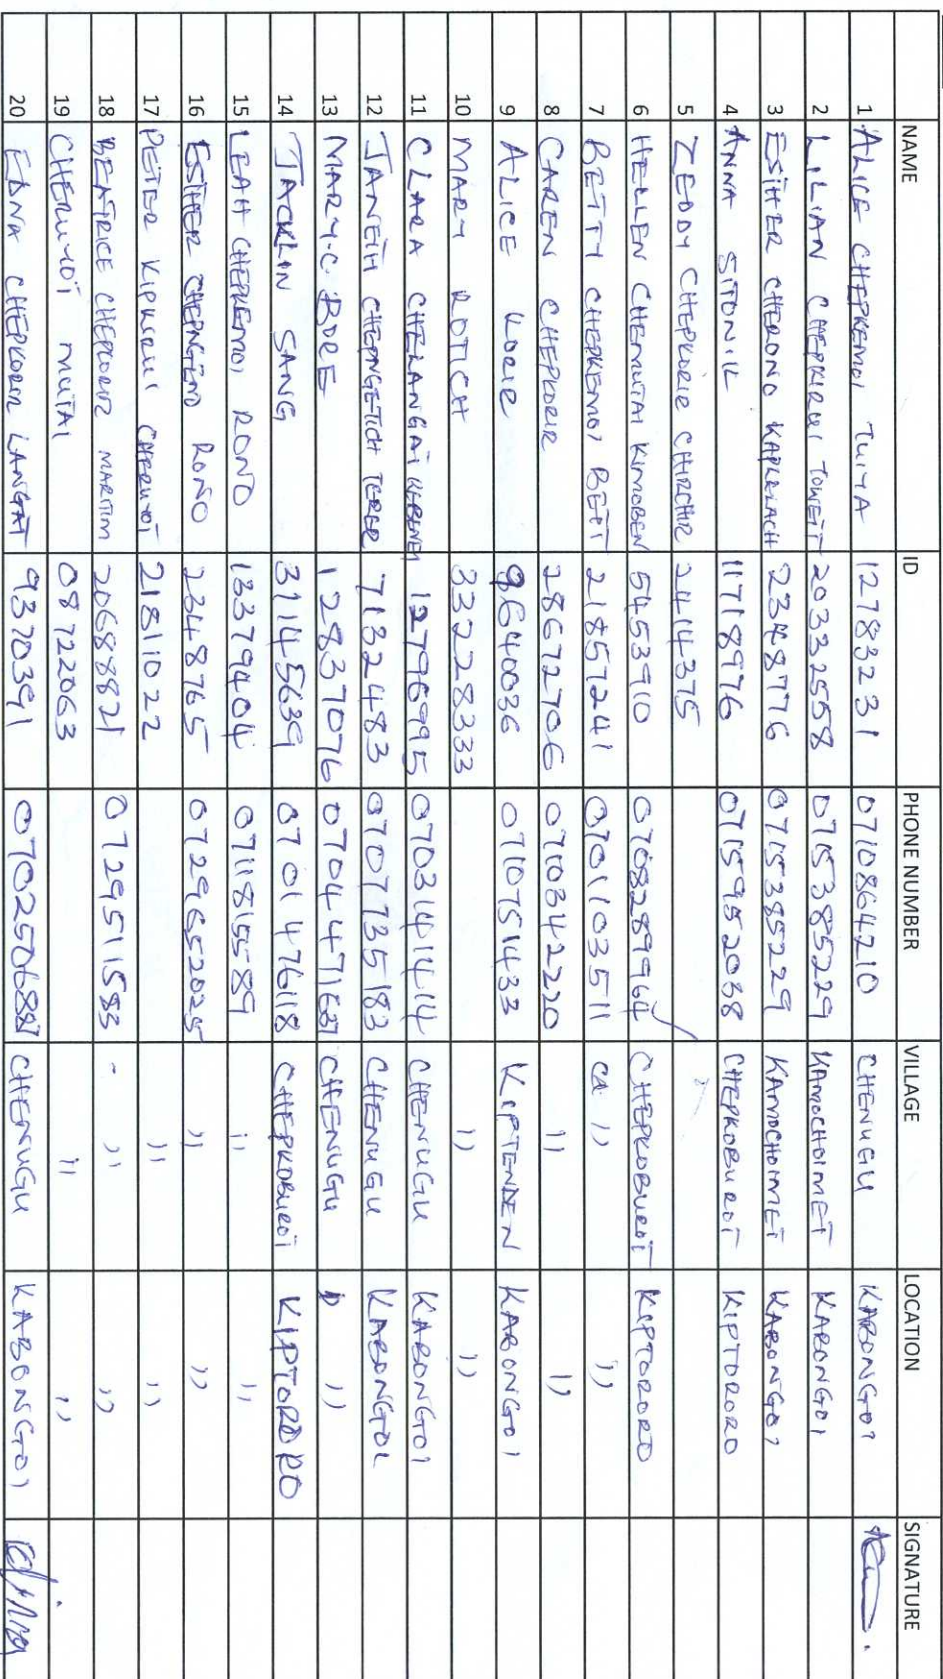 NAME ID PHONE NUMBER VILLAGE LOCATION SIGNATURE
1 ALICE CHEPKEMOI TUIYA 12783231 0710864210 CHENUGU KABONGOI
2 LILIAN CHEPKIRUI TOWETT 20332558 0715385229 KAMOCHOIMET KABONGOI
3 ESTHER CHERONO KAPKELACH 23488776 0715385229 KAMOCHOIMET KABONGOI
4 ANNA SITONIK 11718976 0715952038 CHEPKOBUROT KIPTORORO
5 ZEDDY CHEPKORIR CHIRCHIR 2414375
6 HELLEN CHEMUTAI KIMOBEN 5453910 0708289964 CHEPKOBUROT KIPTORORO
7 BETTY CHEPKEMOI BETT 21857241 0701103511 CA )) ))
8 CAREN CHEPKORIR 28672706 0710342220 )) ))
9 ALICE KORIR 9640036 0710751433 KIPTENDEN KABONGOI
10 MARY ROTICH 33228333 )) ))
11 CLARA CHELANGAT 12796995 0703141414 CHENUGU KABONGOI
12 JANETH CHEPNGETICH TERER 7132483 0707735183 CHENUGU KABONGOI
13 MARY.C. BORE 12837076 CHENUGU ))
14 JACKLIN SANG 31145639 0701476118 CHEPKOBUROT KIPTORORO
15 LEAH CHEPKEMOI RONO 13379404 0711815589 )) ))
16 ESTHER CHEPNGENO RONO 2348765 0729652025 )) ))
17 PETER KIPKIRUI CHERUIOT 21811022 )) ))
18 BEATRICE CHEPKORIR MARITIM 20688821 0729511583 - )) ))
19 CHERUIOT MUTAI 08722063 )) ))
20 EDNA CHEPKORIR LANGAT 9370391 0702506887 CHENUGU KABONGOI